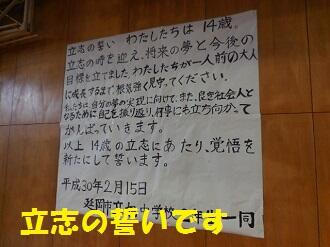 立志の誓い わたしたちは 14歳。
立志の時を迎え、将来の夢と今後の
目標を立てました。わたしたちが一人前の大人
に成長するまで、根気強く見守ってください。
わたしたちは、自分の夢の実現に向けて、また、良き社会人と
なるために自己を振り返り、何事にも立ち向かって
がんばっていきます。
以上 14歳の立志にあたり、覚悟を
新たにして誓います。
平成30年2月15日
延岡市立 中学校 年 一同
立志の誓いです